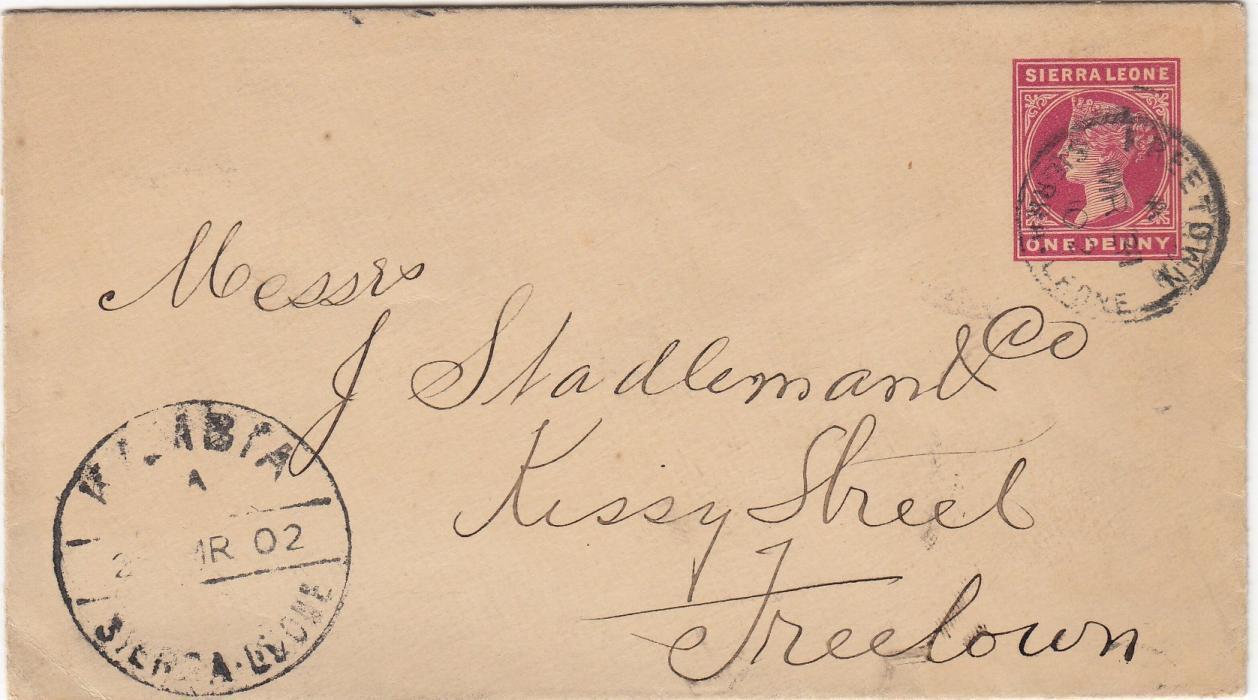 SIERRA LEONE
ONE PENNY
FREETOWN
SIERRA LEONE
MR
02
Messrs
J Stadleman & Co
Kissy Street
Freetown
A
MR 02
SIERRA·LEONE